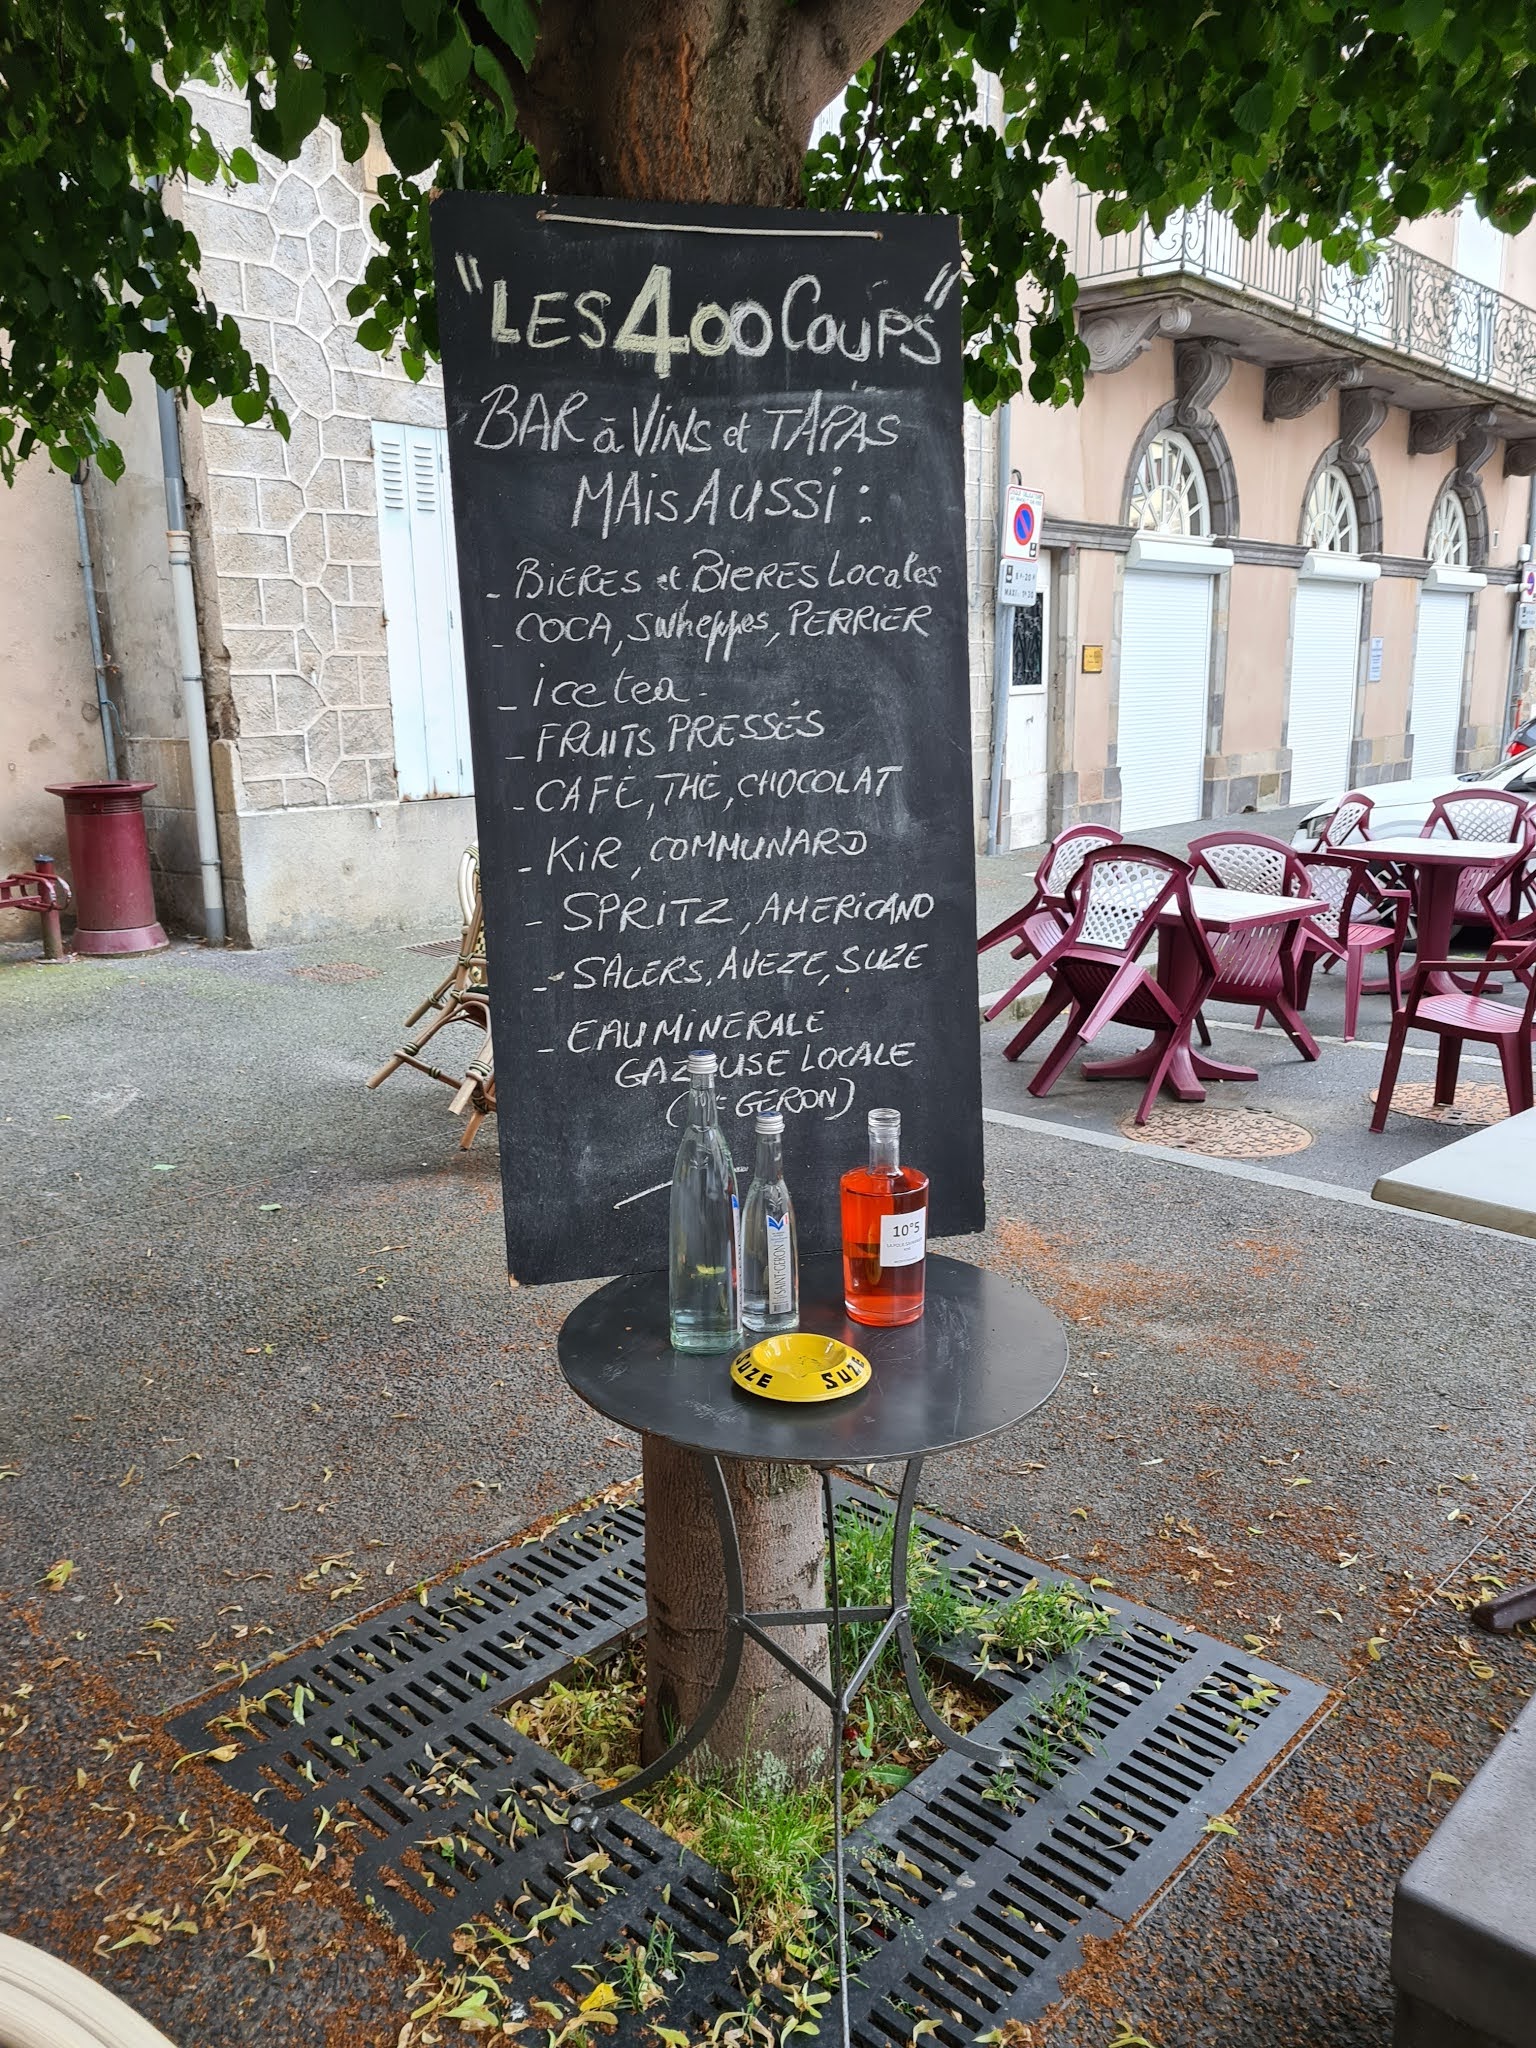 "LES 400 COUPS"
BAR à VINS et TAPAS
MAIS AUSSI :
- BIERES et BIERES LOCALES
- COCA, SWHEPPES, PERRIER
- ice tea -
- FRUITS PRESSÉS
- CAFÉ, THÉ, CHOCOLAT
- KIR, COMMUNARD
- SPRITZ, AMERICANO
- SALERS, AVEZE, SUZE
- EAU MINERALE
GAZEUSE LOCALE
GERON)
SAINT-GERON
10°5
SUZE SUZE